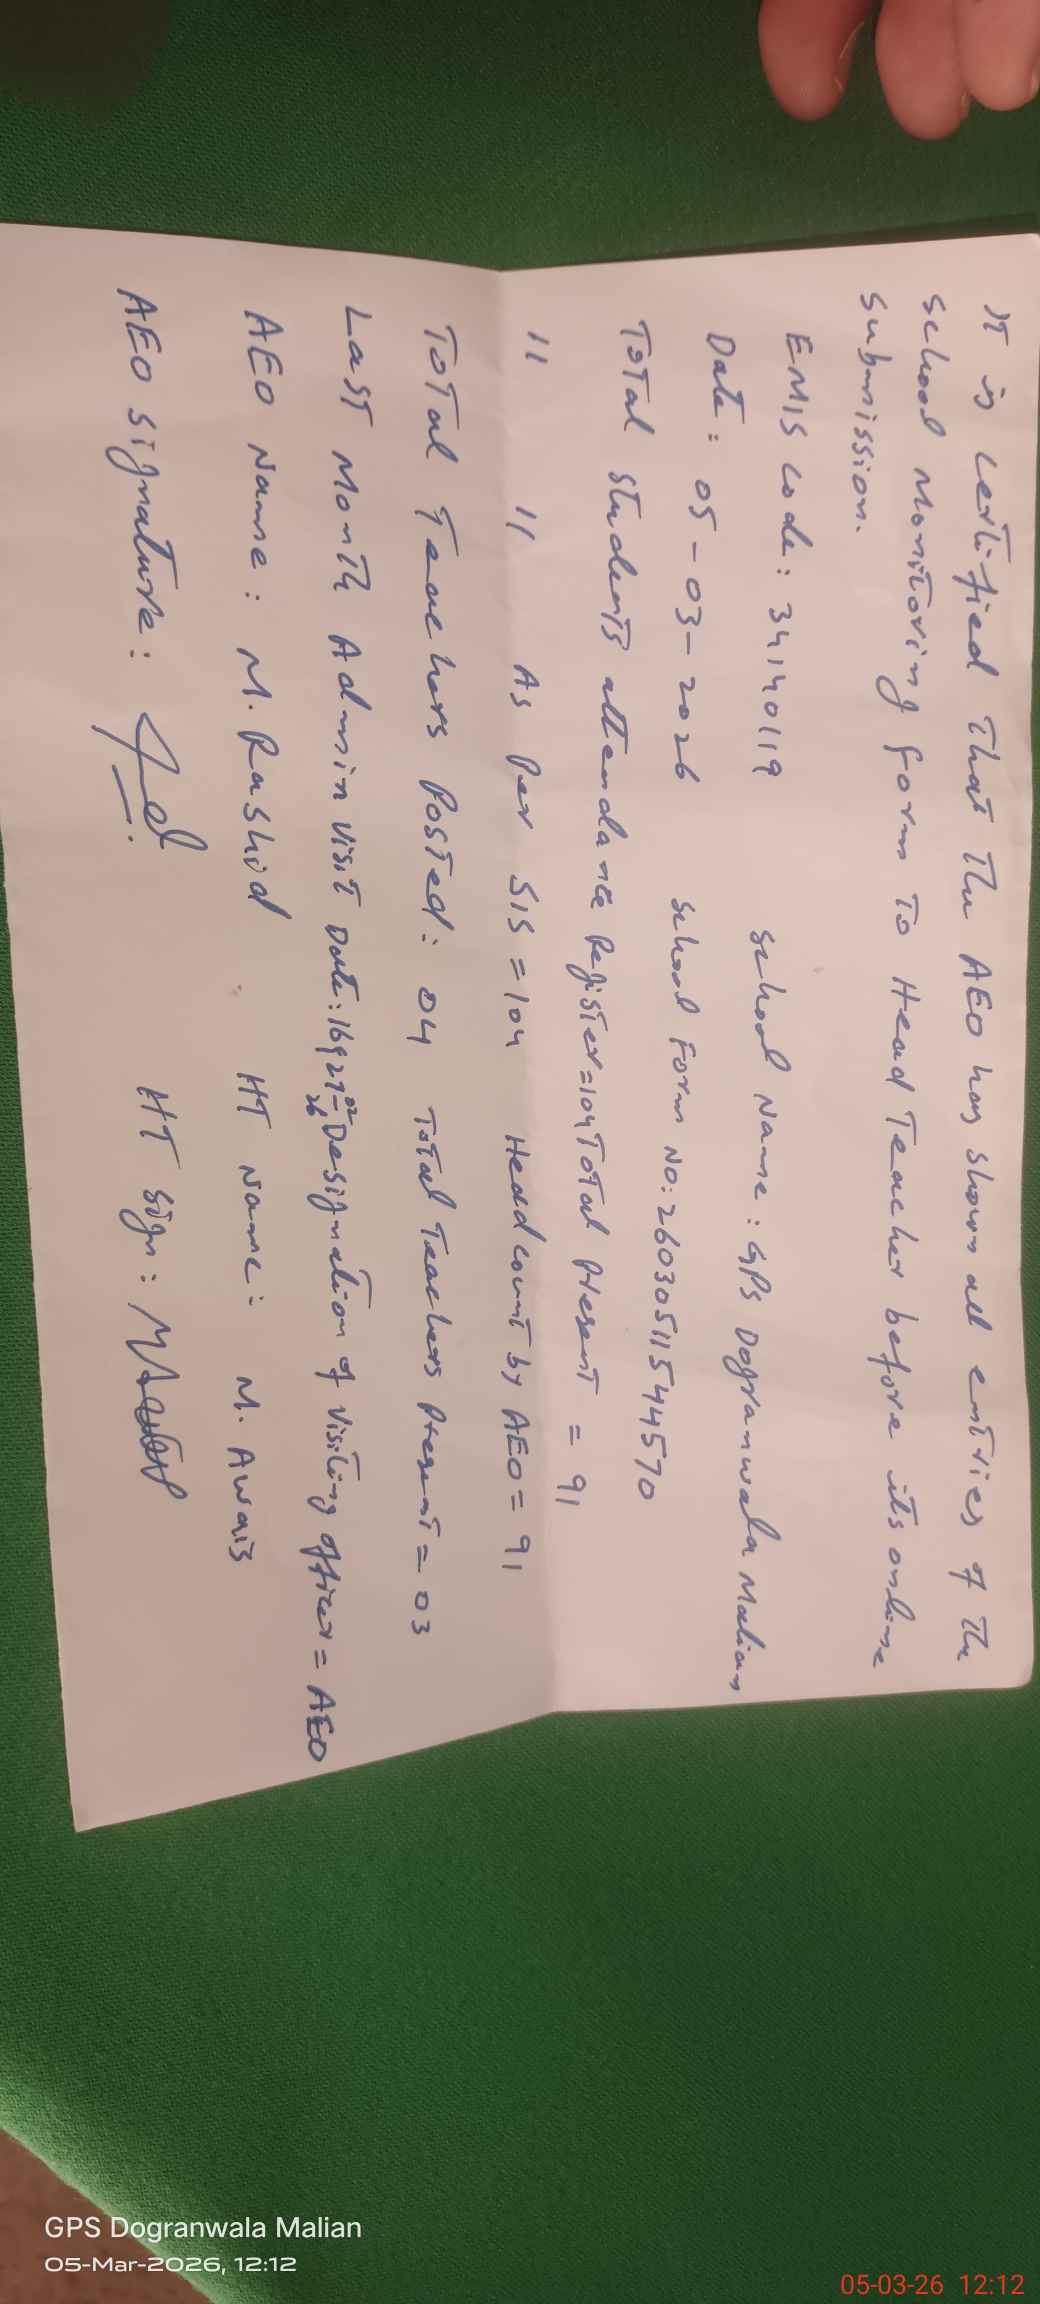 It is certified that the AEO has shown all entries of the
school Monitoring form to Head Teacher before its online
submission.
EMIS code: 34140119 school Name: GPS Dogranwala Malian
Date: 05-03-2026 school Form No: 260305115444570
Total students attendance Register=104 Total present = 91
11 11 As Per SIS =104 Head count by AEO= 91
Total Teachers Posted: 04 Total Teachers present= 03
Last Month Admin visit Date: 16,27-02-26 Designation of visiting officer= AEO
AEO Name: M. Rashid HT Name: M. Awais
AEO signature: HT sign:
GPS Dogranwala Malian
05-Mar-2026, 12:12
05-03-26 12:12